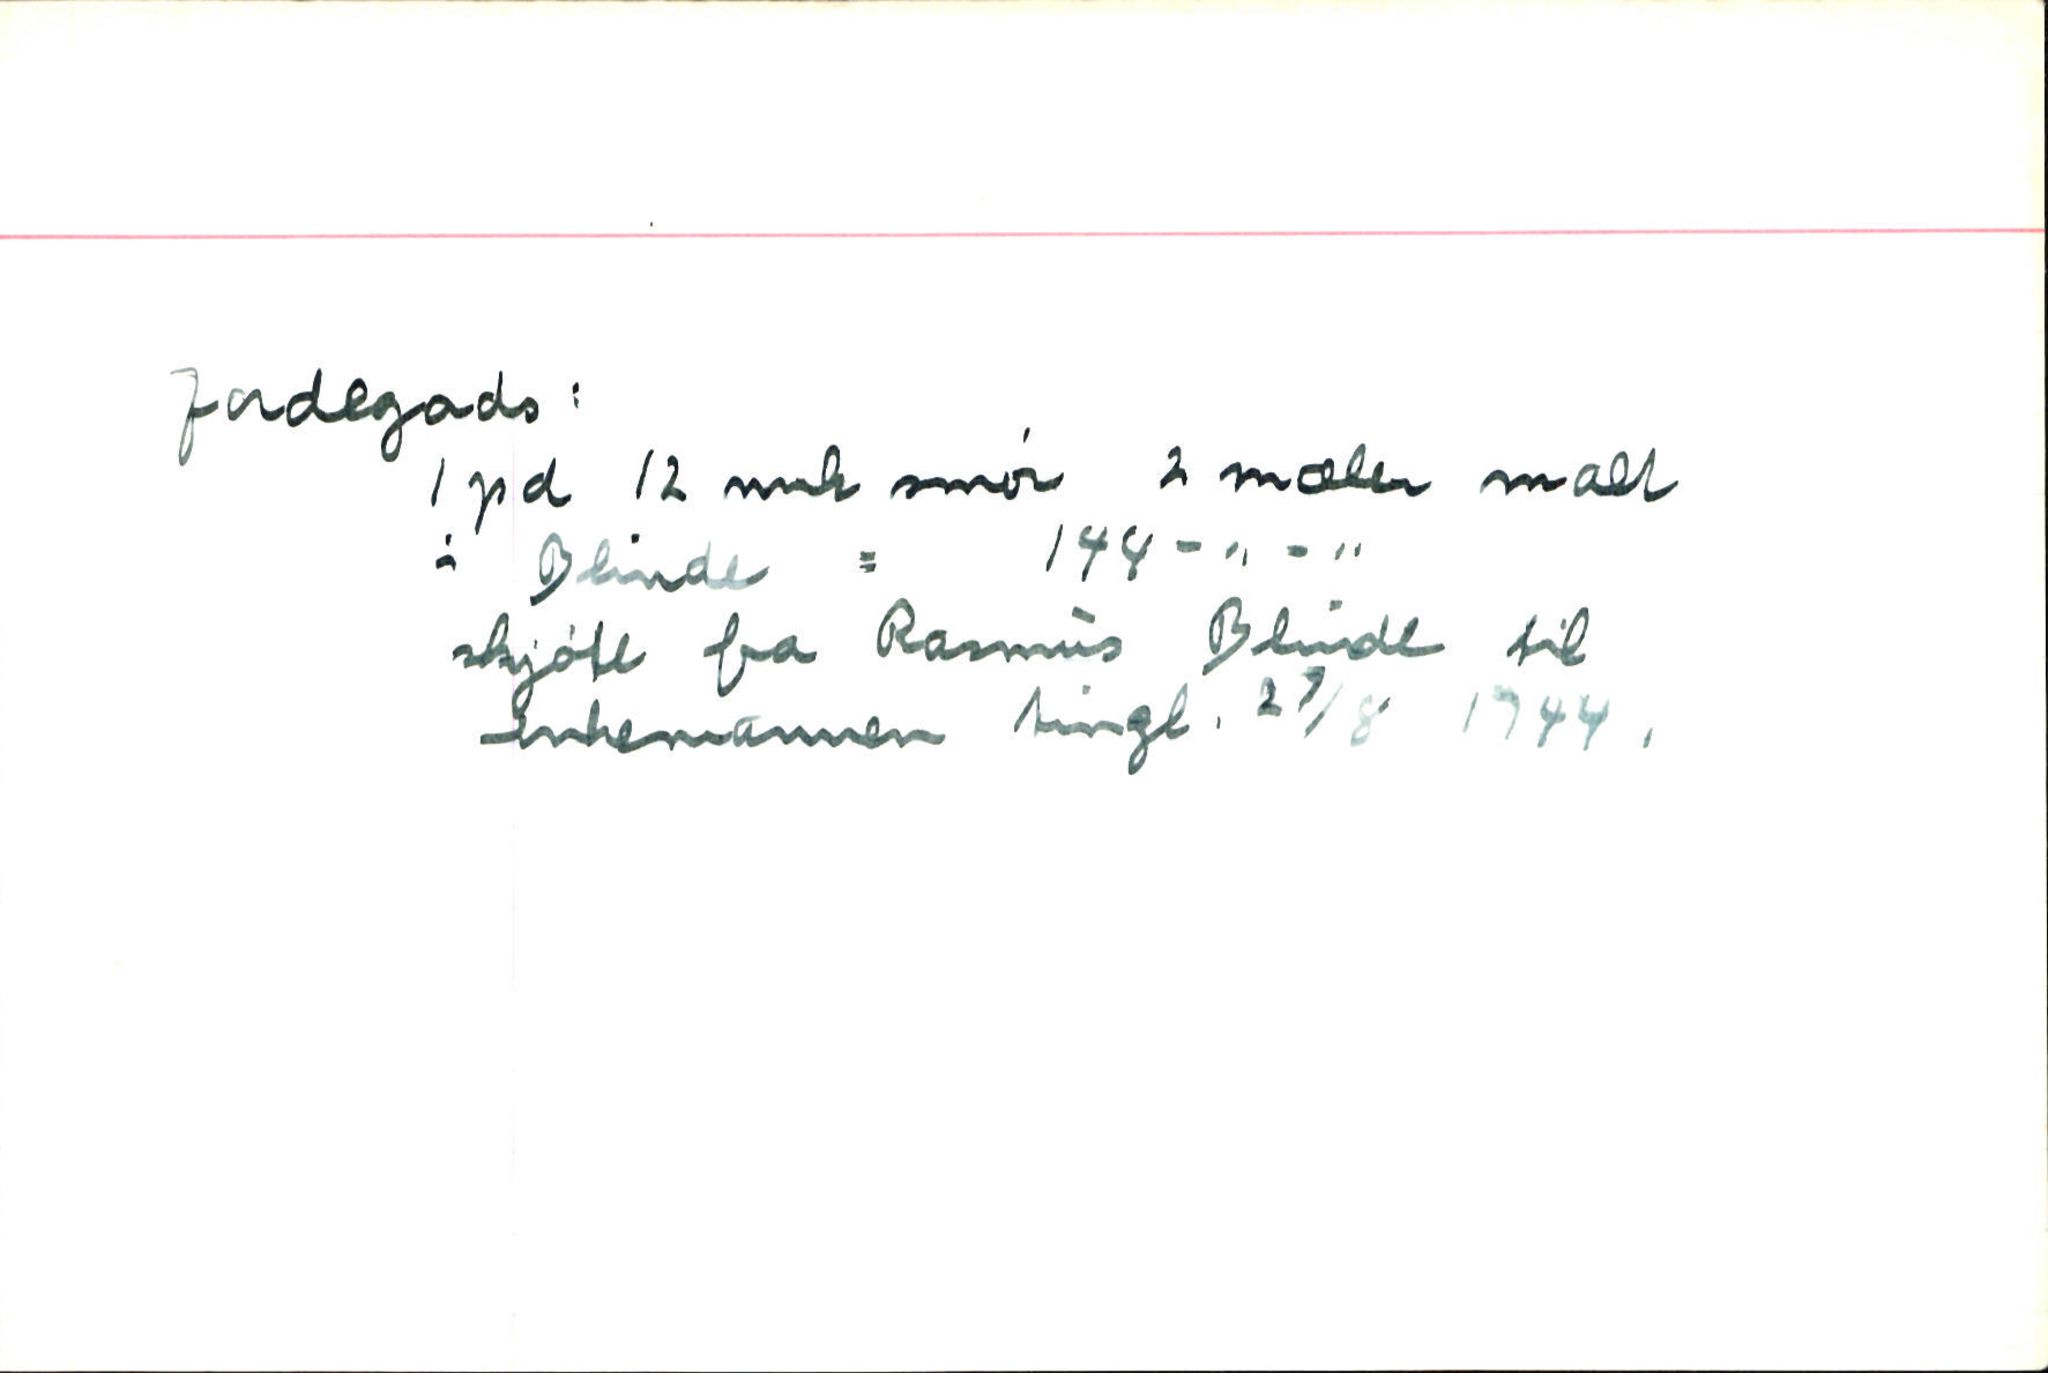 Jordegods:
1 pd 12 mrk smør 2 mæler malt
i Blinde = 144 - " - "
skjøte fra Rasmus Blinde til
enkemannen tingl. 27/8 1744.